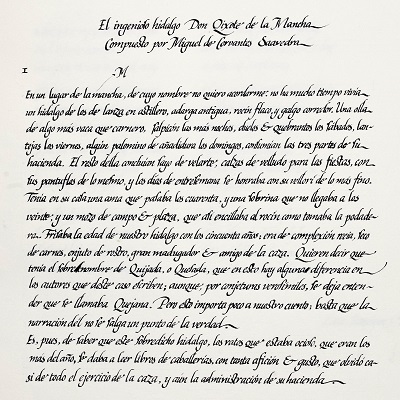 El ingenioso hidalgo Don Qixote de la Mancha
Compuesto por Miguel de Cervantes Saavedra
1 M
En un lugar de la mancha, de cuyo nombre no quiero acordarme, no ha mucho tiempo vivía
un hidalgo de los de lanza en astillero, adarga antigua, rocín flaco, y galgo corredor. Una olla
de algo más vaca que carnero, salpicón las más noches, duelos & quebrantos los sábados, lan-
tejas los viernes, algún palomino de añadidura los domingos, consumían las tres partes de su
hacienda. El resto della concluían sayo de velarte, calzas de velludo para las fiestas, con
sus pantuflos de lo mesmo, y los días de entresemana se honraba con su vellorí de lo más fino.
Tenía en su casa una ama que pasaba los cuarenta, y una sobrina que no llegaba a los
veinte, y un mozo de campo & plaza, que así ensillaba el rocín como tomaba la podade-
ra. Frisaba la edad de nuestro hidalgo con los cincuenta años; era de complexión recia, seco
de carnes, enjuto de rostro, gran madrugador & amigo de la caza. Quieren decir que
tenía el sobrenombre de Quijada, o Quesada, que en esto hay alguna diferencia en
los autores que deste caso escriben; aunque, por conjeturas verosímiles, se deja enten-
der que se llamaba Quejana. Pero esto importa poco a nuestro cuento; basta que la
narración del no se salga un punto de la verdad.
Es, pues, de saber que este sobredicho hidalgo, los ratos que estaba ocioso, que eran los
más del año, se daba a leer libros de caballerías, con tanta afición & gusto, que olvidó ca-
si de todo el ejercicio de la caza, y aún la administración de su hacienda